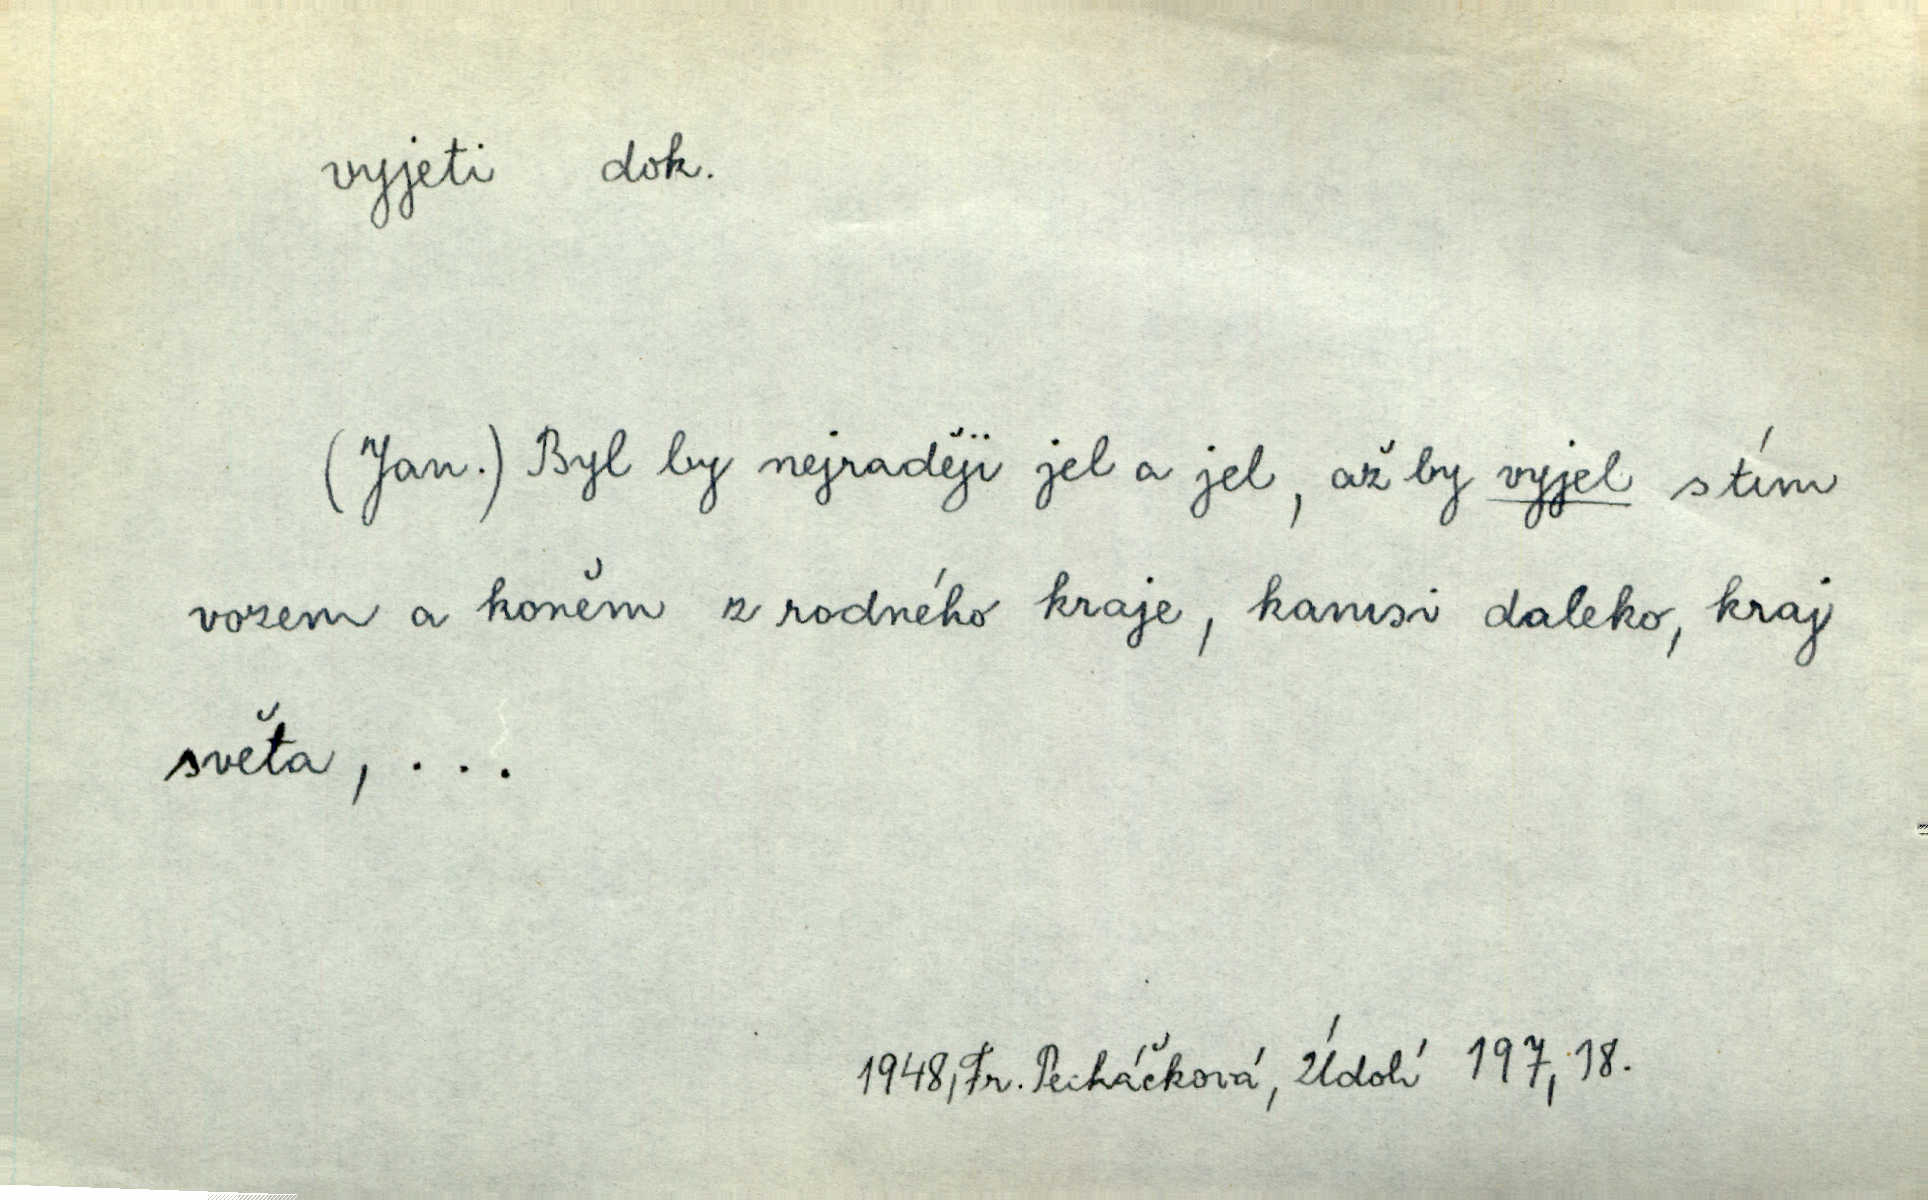 vyjeti dok.
(Jan.) Byl by nejraději jel a jel, až by vyjel s tím
vozem a koněm z rodného kraje, kamsi daleko, kraj
světa, . . .
1948, Fr. Pecháčková, Údolí 197, 18.